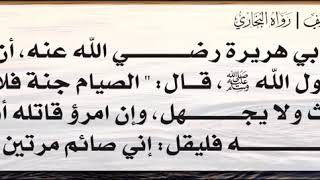 رواه البخاري
بي هريرة رضي الله عنه، أن
ول الله ﷺ، قال: " الصيام جنة فلا
ث ولا يجهل، وإن امرؤ قاتله أ
ه فليقل: إني صائم مرتين